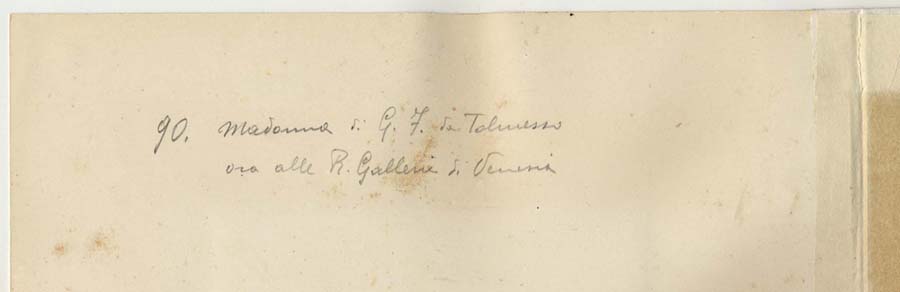 90. Madonna di G. F. da Tolmesso
ora alle R. Gallerie di Venezia